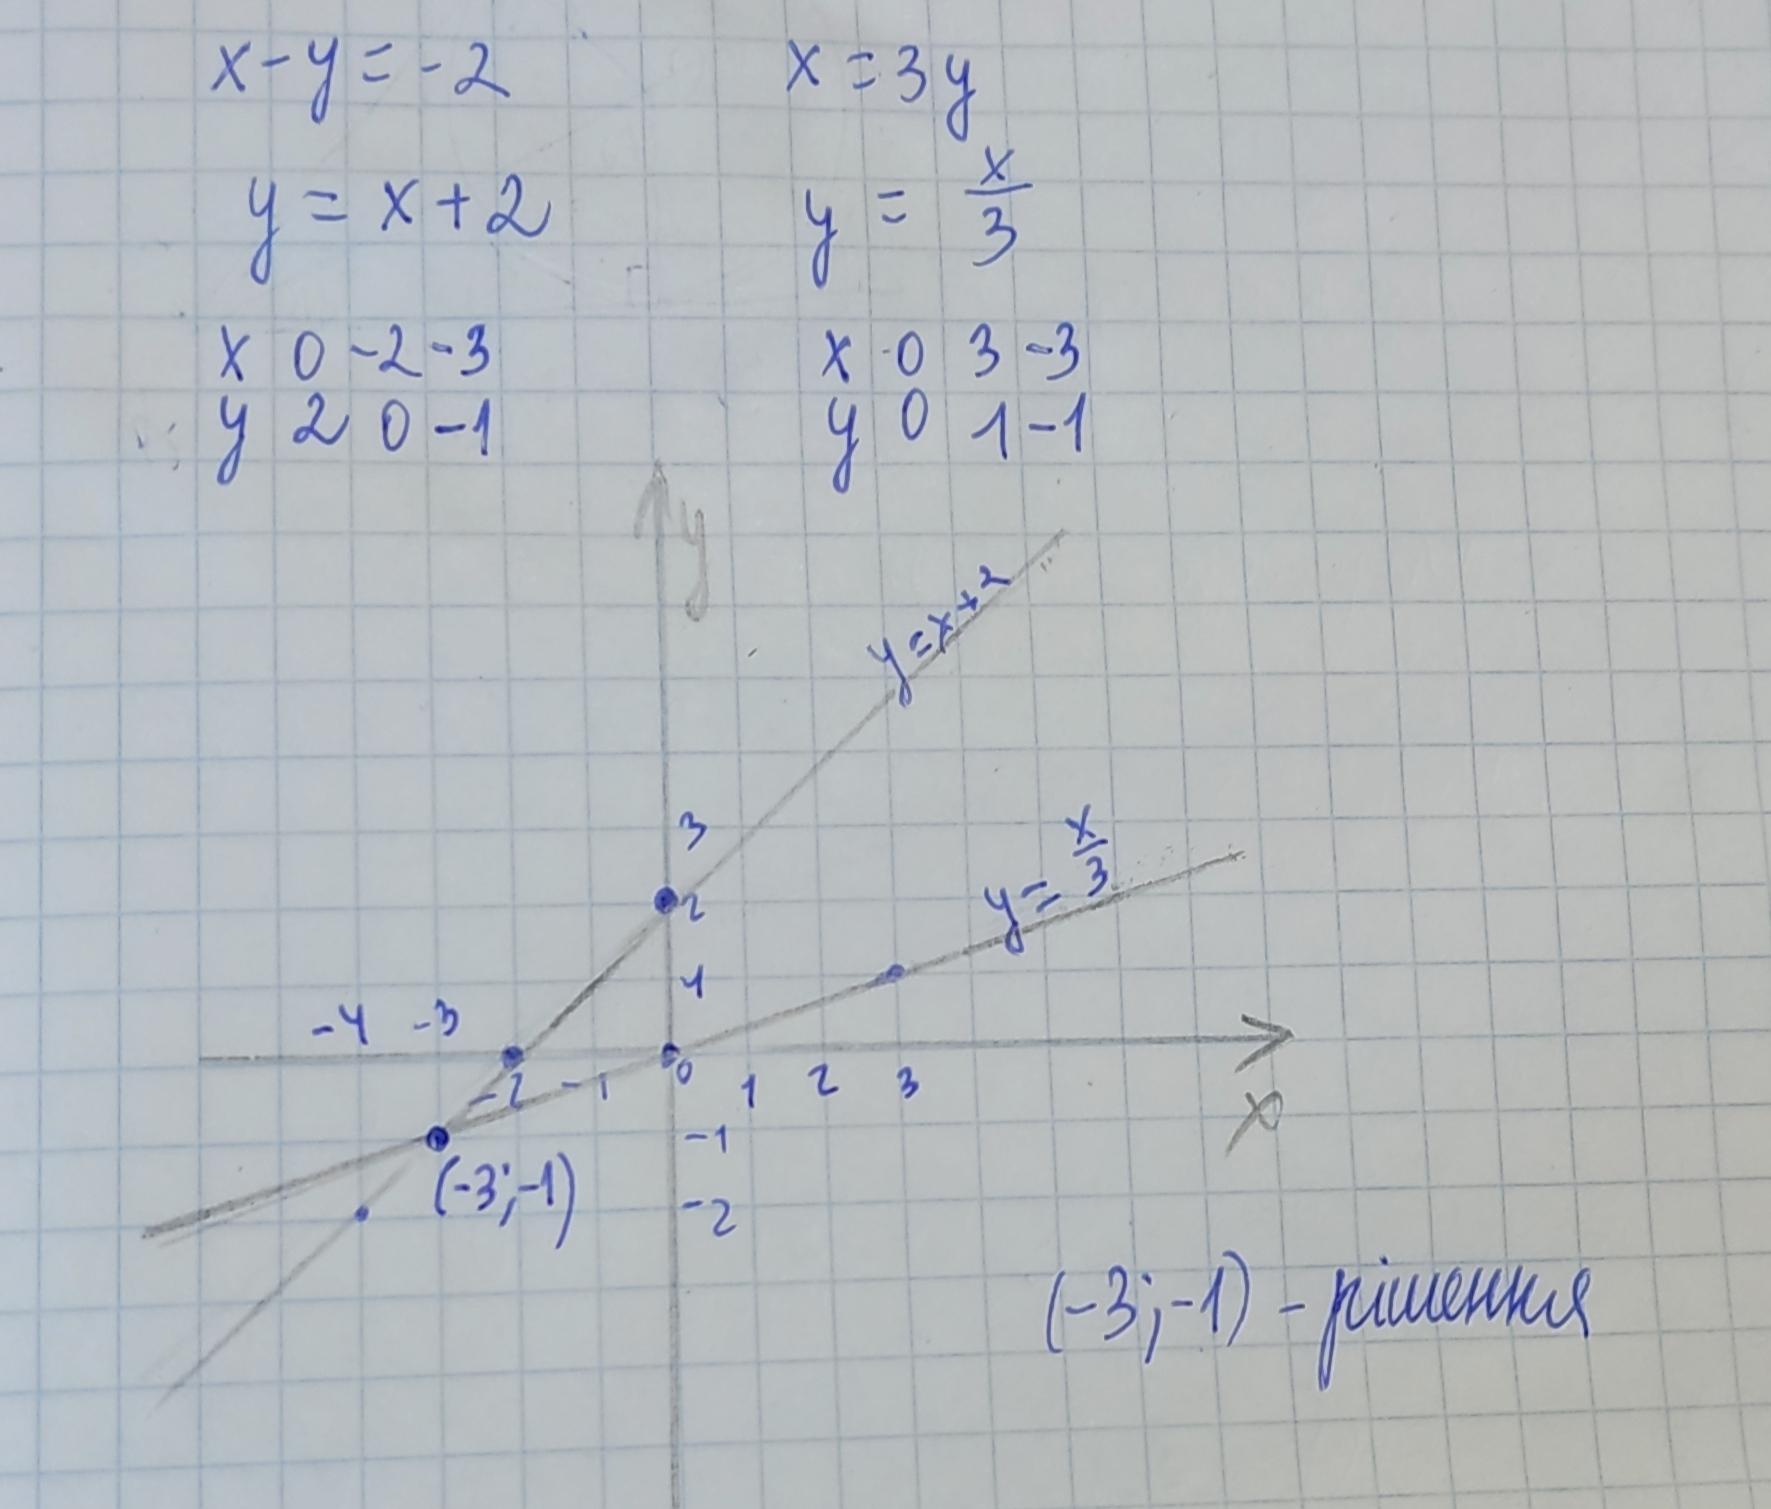 x-y=-2 x=3y
y=x+2 y=x/3
x 0 -2 -3 x 0 3 -3
y 2 0 -1 y 0 1 -1
y
y=x+2
3
y=x/3
2
1
-4 -3
-2 -1 0 1 2 3
x
-1
(-3;-1)
-2
(-3;-1) - рішення